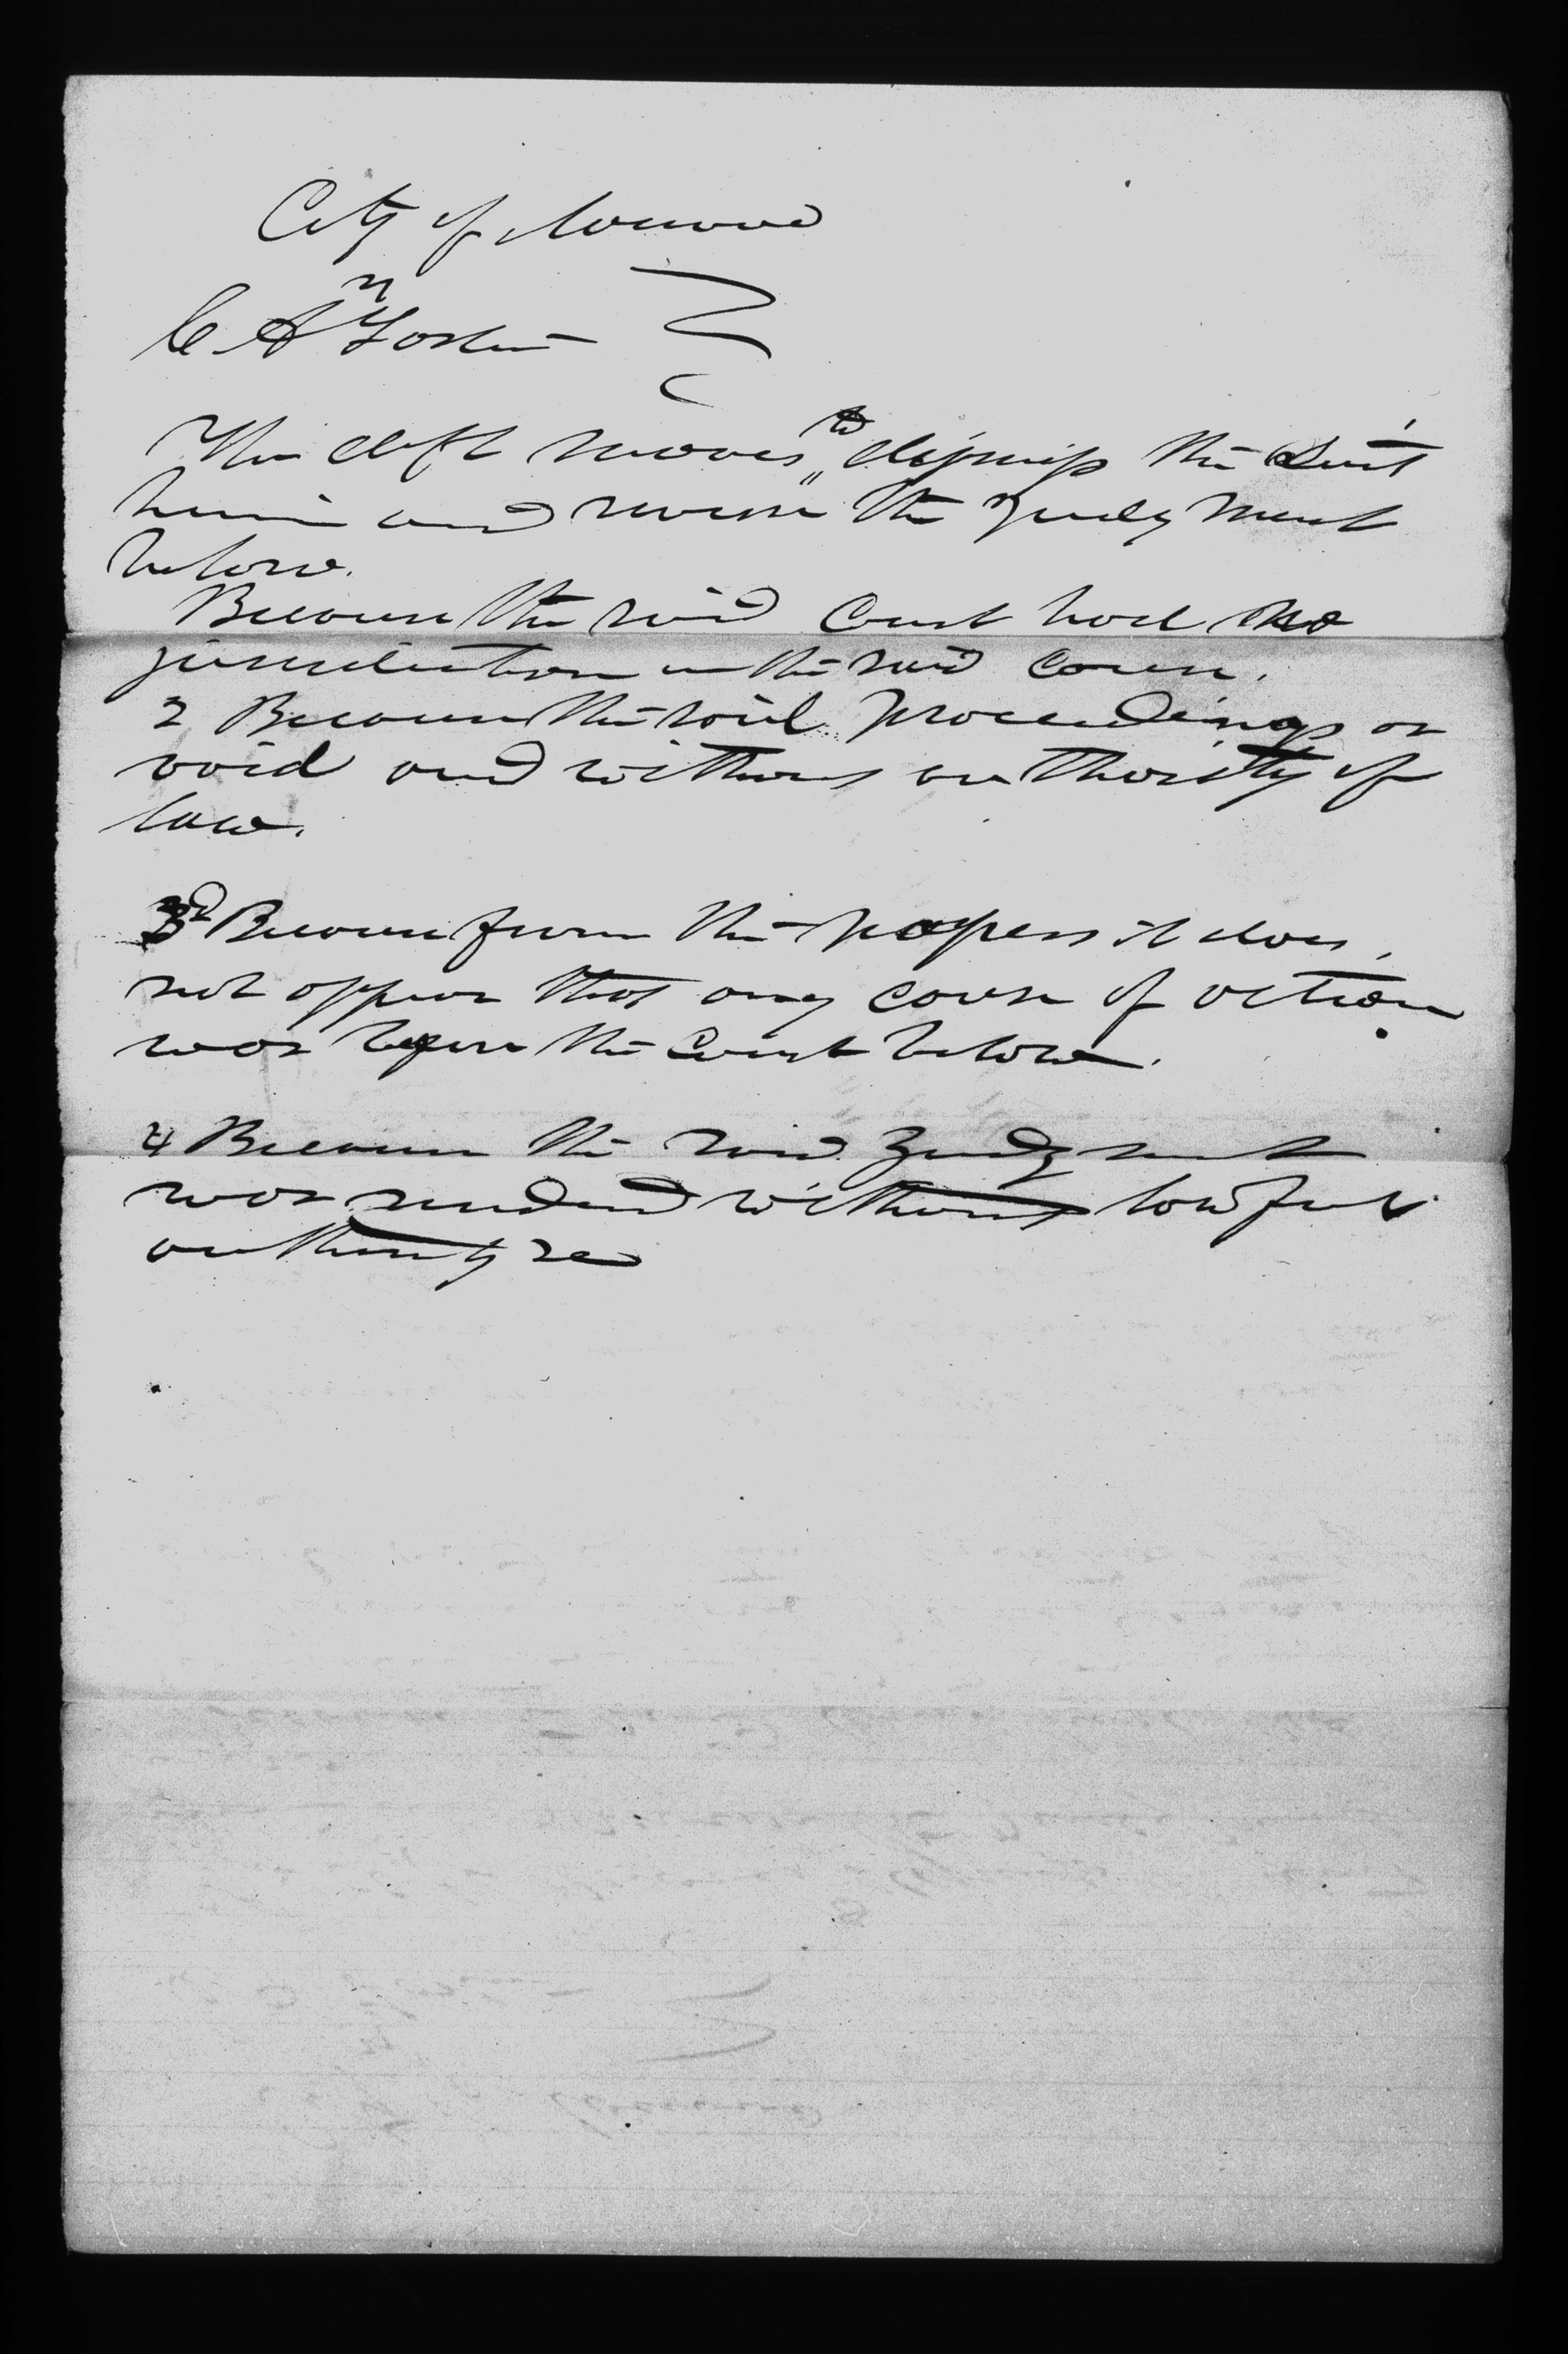 City of
vs
C A
The deft moves to dismiss the Suit
herein and reverse the Judgment
below.
Because the said Court had no
jurisdiction in the said cause.
2 Because the said proceedings are
void and without authority of
law.
3d Because from the papers it does
not appear that any cause of action
was before the Court below.
4 Because the said Judgment
was rendered without lawful
authority